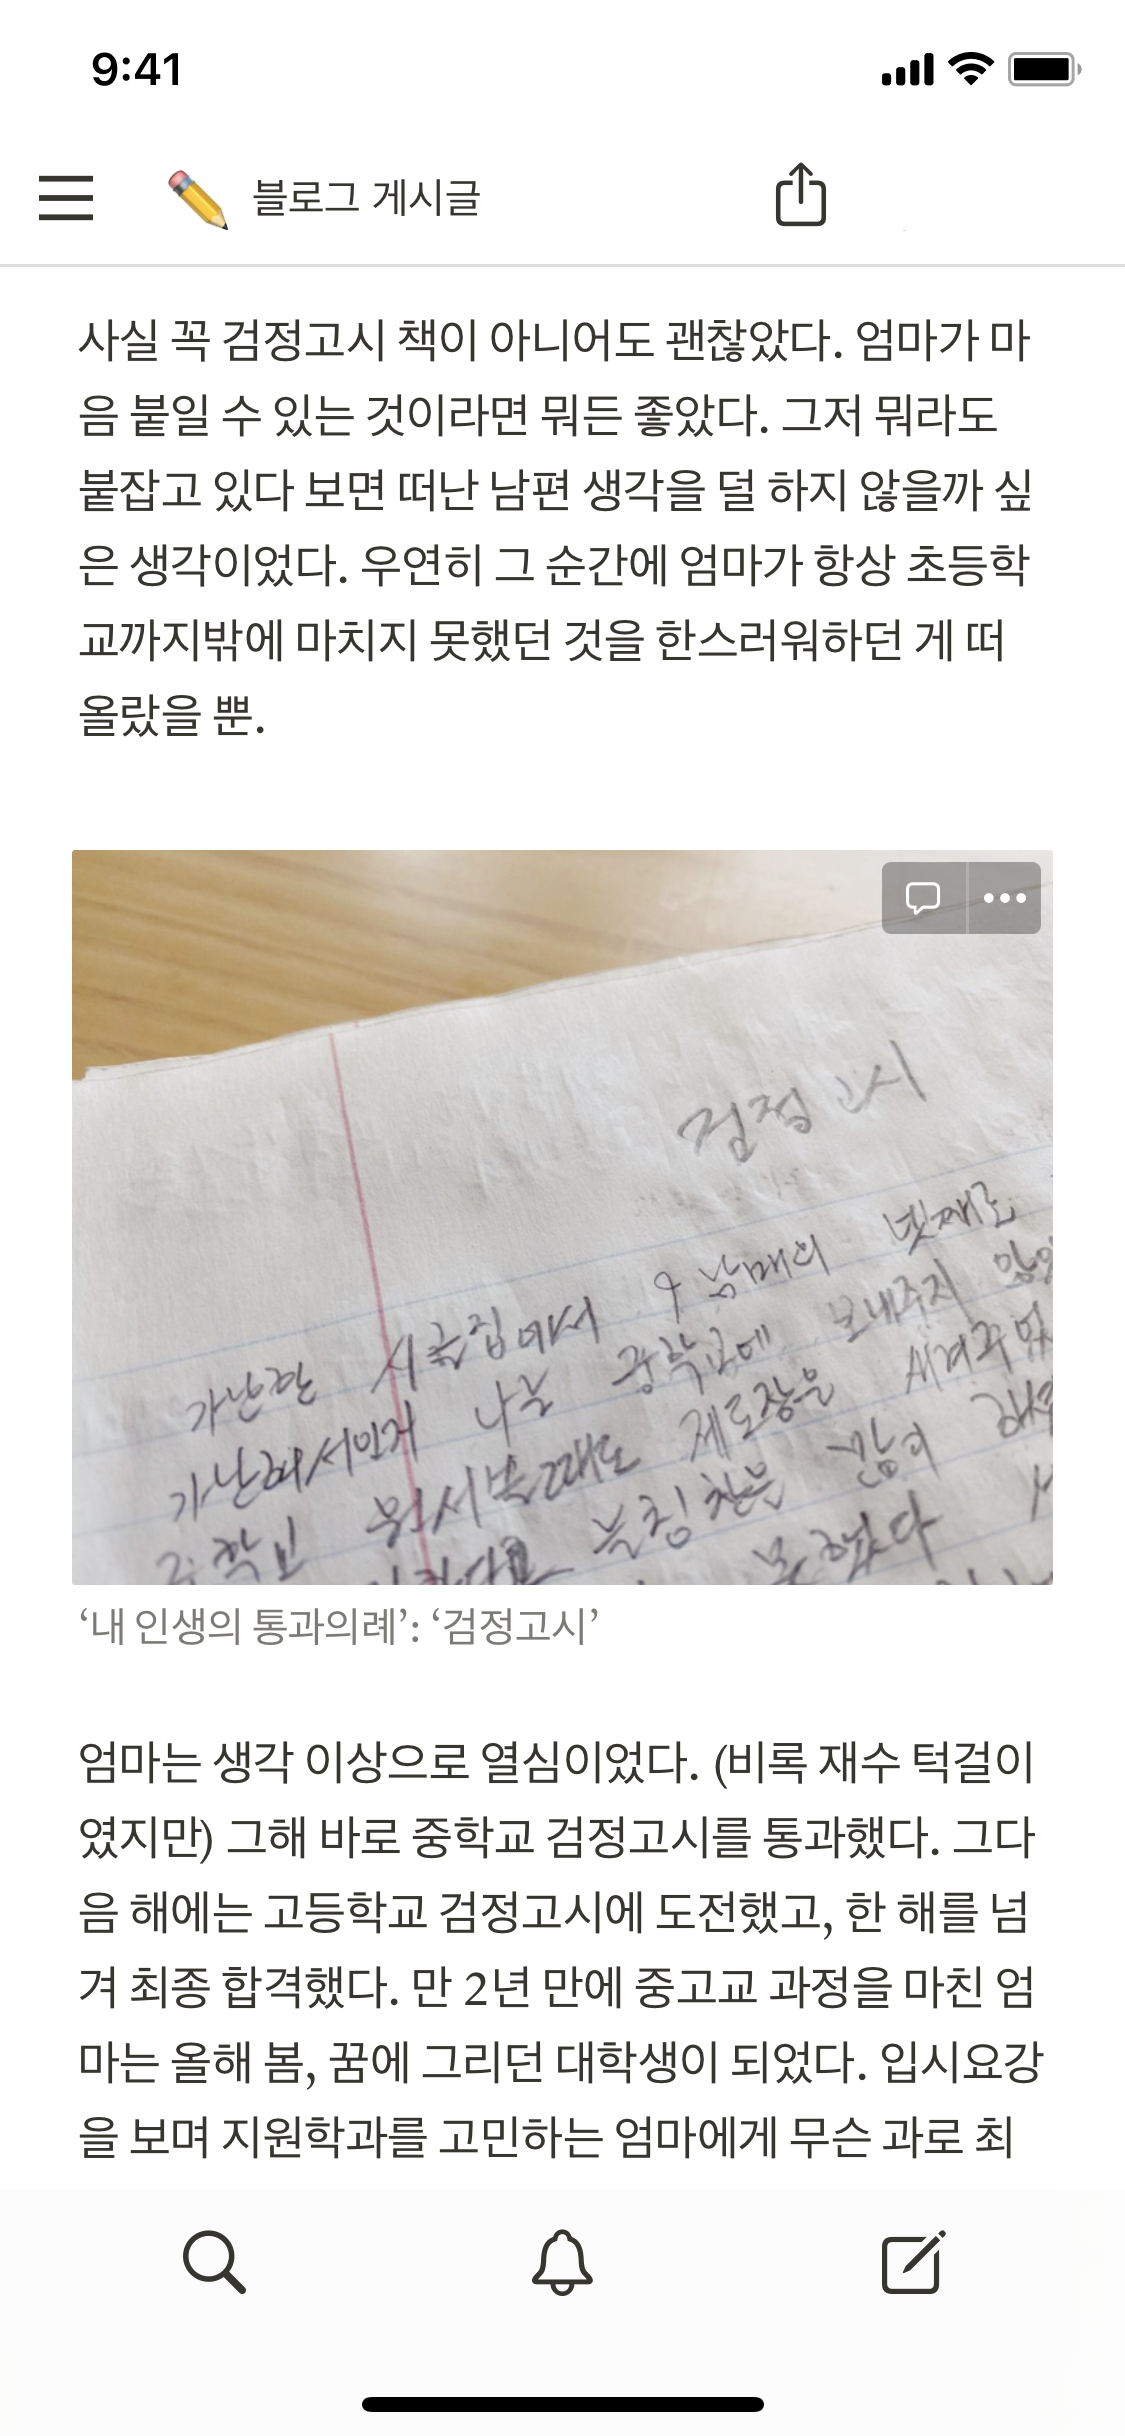 9:41
블로그 게시글
사실 꼭 검정고시 책이 아니어도 괜찮았다. 엄마가 마
음 붙일 수 있는 것이라면 뭐든 좋았다. 그저 뭐라도
붙잡고 있다 보면 떠난 남편 생각을 덜 하지 않을까 싶
은 생각이었다. 우연히 그 순간에 엄마가 항상 초등학
교까지밖에 마치지 못했던 것을 한스러워하던 게 떠
올랐을 뿐.
검정고시
가난한 시골집에서 9남매의 넷째로
가난해서인지 나는 중학교에 보내주지
중학교 원서 쓸때도 제도장을
못했다
‘내 인생의 통과의례’: ‘검정고시’
엄마는 생각 이상으로 열심이었다. (비록 재수 턱걸이
였지만) 그해 바로 중학교 검정고시를 통과했다. 그다
음 해에는 고등학교 검정고시에 도전했고, 한 해를 넘
겨 최종 합격했다. 만 2년 만에 중고교 과정을 마친 엄
마는 올해 봄, 꿈에 그리던 대학생이 되었다. 입시요강
을 보며 지원학과를 고민하는 엄마에게 무슨 과로 최